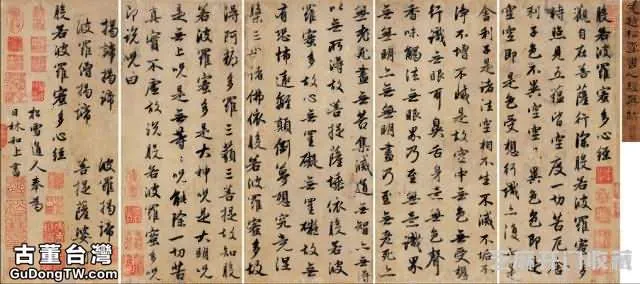 般若波羅蜜多心經
觀自在菩薩行深般若波羅蜜多
時照見五蘊皆空度一切苦厄舍
利子色不異空空不異色色即是
空空即是色受想行識亦復如是
舍利子是諸法空相不生不滅不垢不
淨不增不減是故空中無色無受想
行識無眼耳鼻舌身意無色聲
香味觸法無眼界乃至無意識界
無無明亦無無明盡乃至無老死亦
無老死盡無苦集滅道無智亦無得
以無所得故菩提薩埵依般若波
羅蜜多故心無罣礙無罣礙故無
有恐怖遠離顛倒夢想究竟涅
槃三世諸佛依般若波羅蜜多故
得阿耨多羅三藐三菩提故知般
若波羅蜜多是大神呪是大明呪
是無上呪是無等等呪能除一切苦
真實不虛故說般若波羅蜜多呪
即說呪曰
揭諦揭諦 波羅揭諦
波羅僧揭諦 菩提薩婆訶
般若波羅蜜多心經
松雪道人奉為
日林和上書
古董台湾
GuDongTW.com